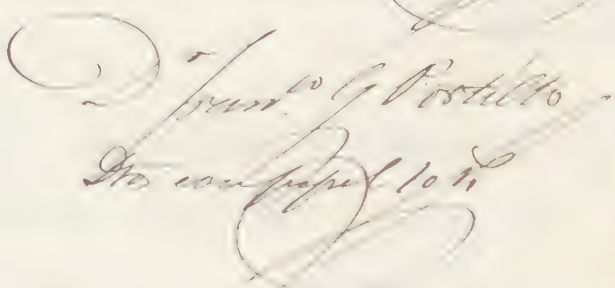 Juan.to G Portillo
Dros con papel 10 r.s